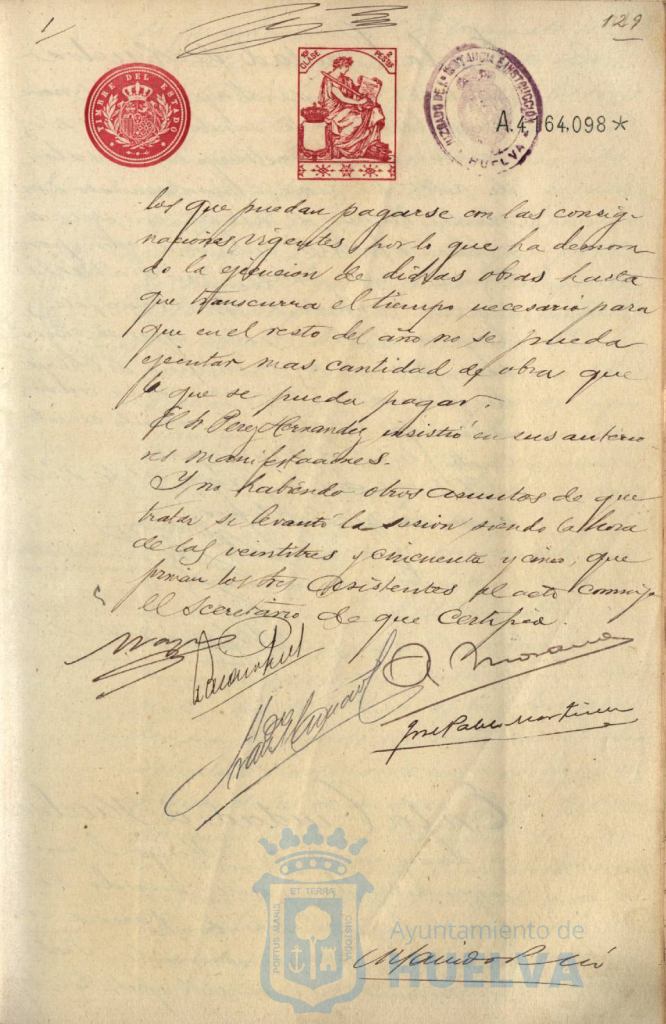 129
TIMBRE DEL ESTADO
CLASE
2 PESETAS
JUZGADO DE 1ª INSTANCIA E INSTRUCCIÓN
HUELVA
A.4.164.098*
los que puedan pagarse con las consig-
naciones vigentes por lo que ha demora
do la ejecucion de dichas obras hasta
que transcurra el tiempo necesario para
que en el resto del año no se pueda
ejecutar mas cantidad de obra que
la que se pueda pagar.
El Sr Perez Hernandez insistió en sus anterio
res manifestaciones.
Y no habiendo otros asuntos de que
tratar se levantó la sesion siendo la hora
de las veintitres y cincuenta y cinco, que
firman los Sres asistentes al acto conmigo
el Secretario de que certifico.
José Pablo Martinez
PORTUS MARIS ET TERRE CUSTODIA
Ayuntamiento de
HUELVA